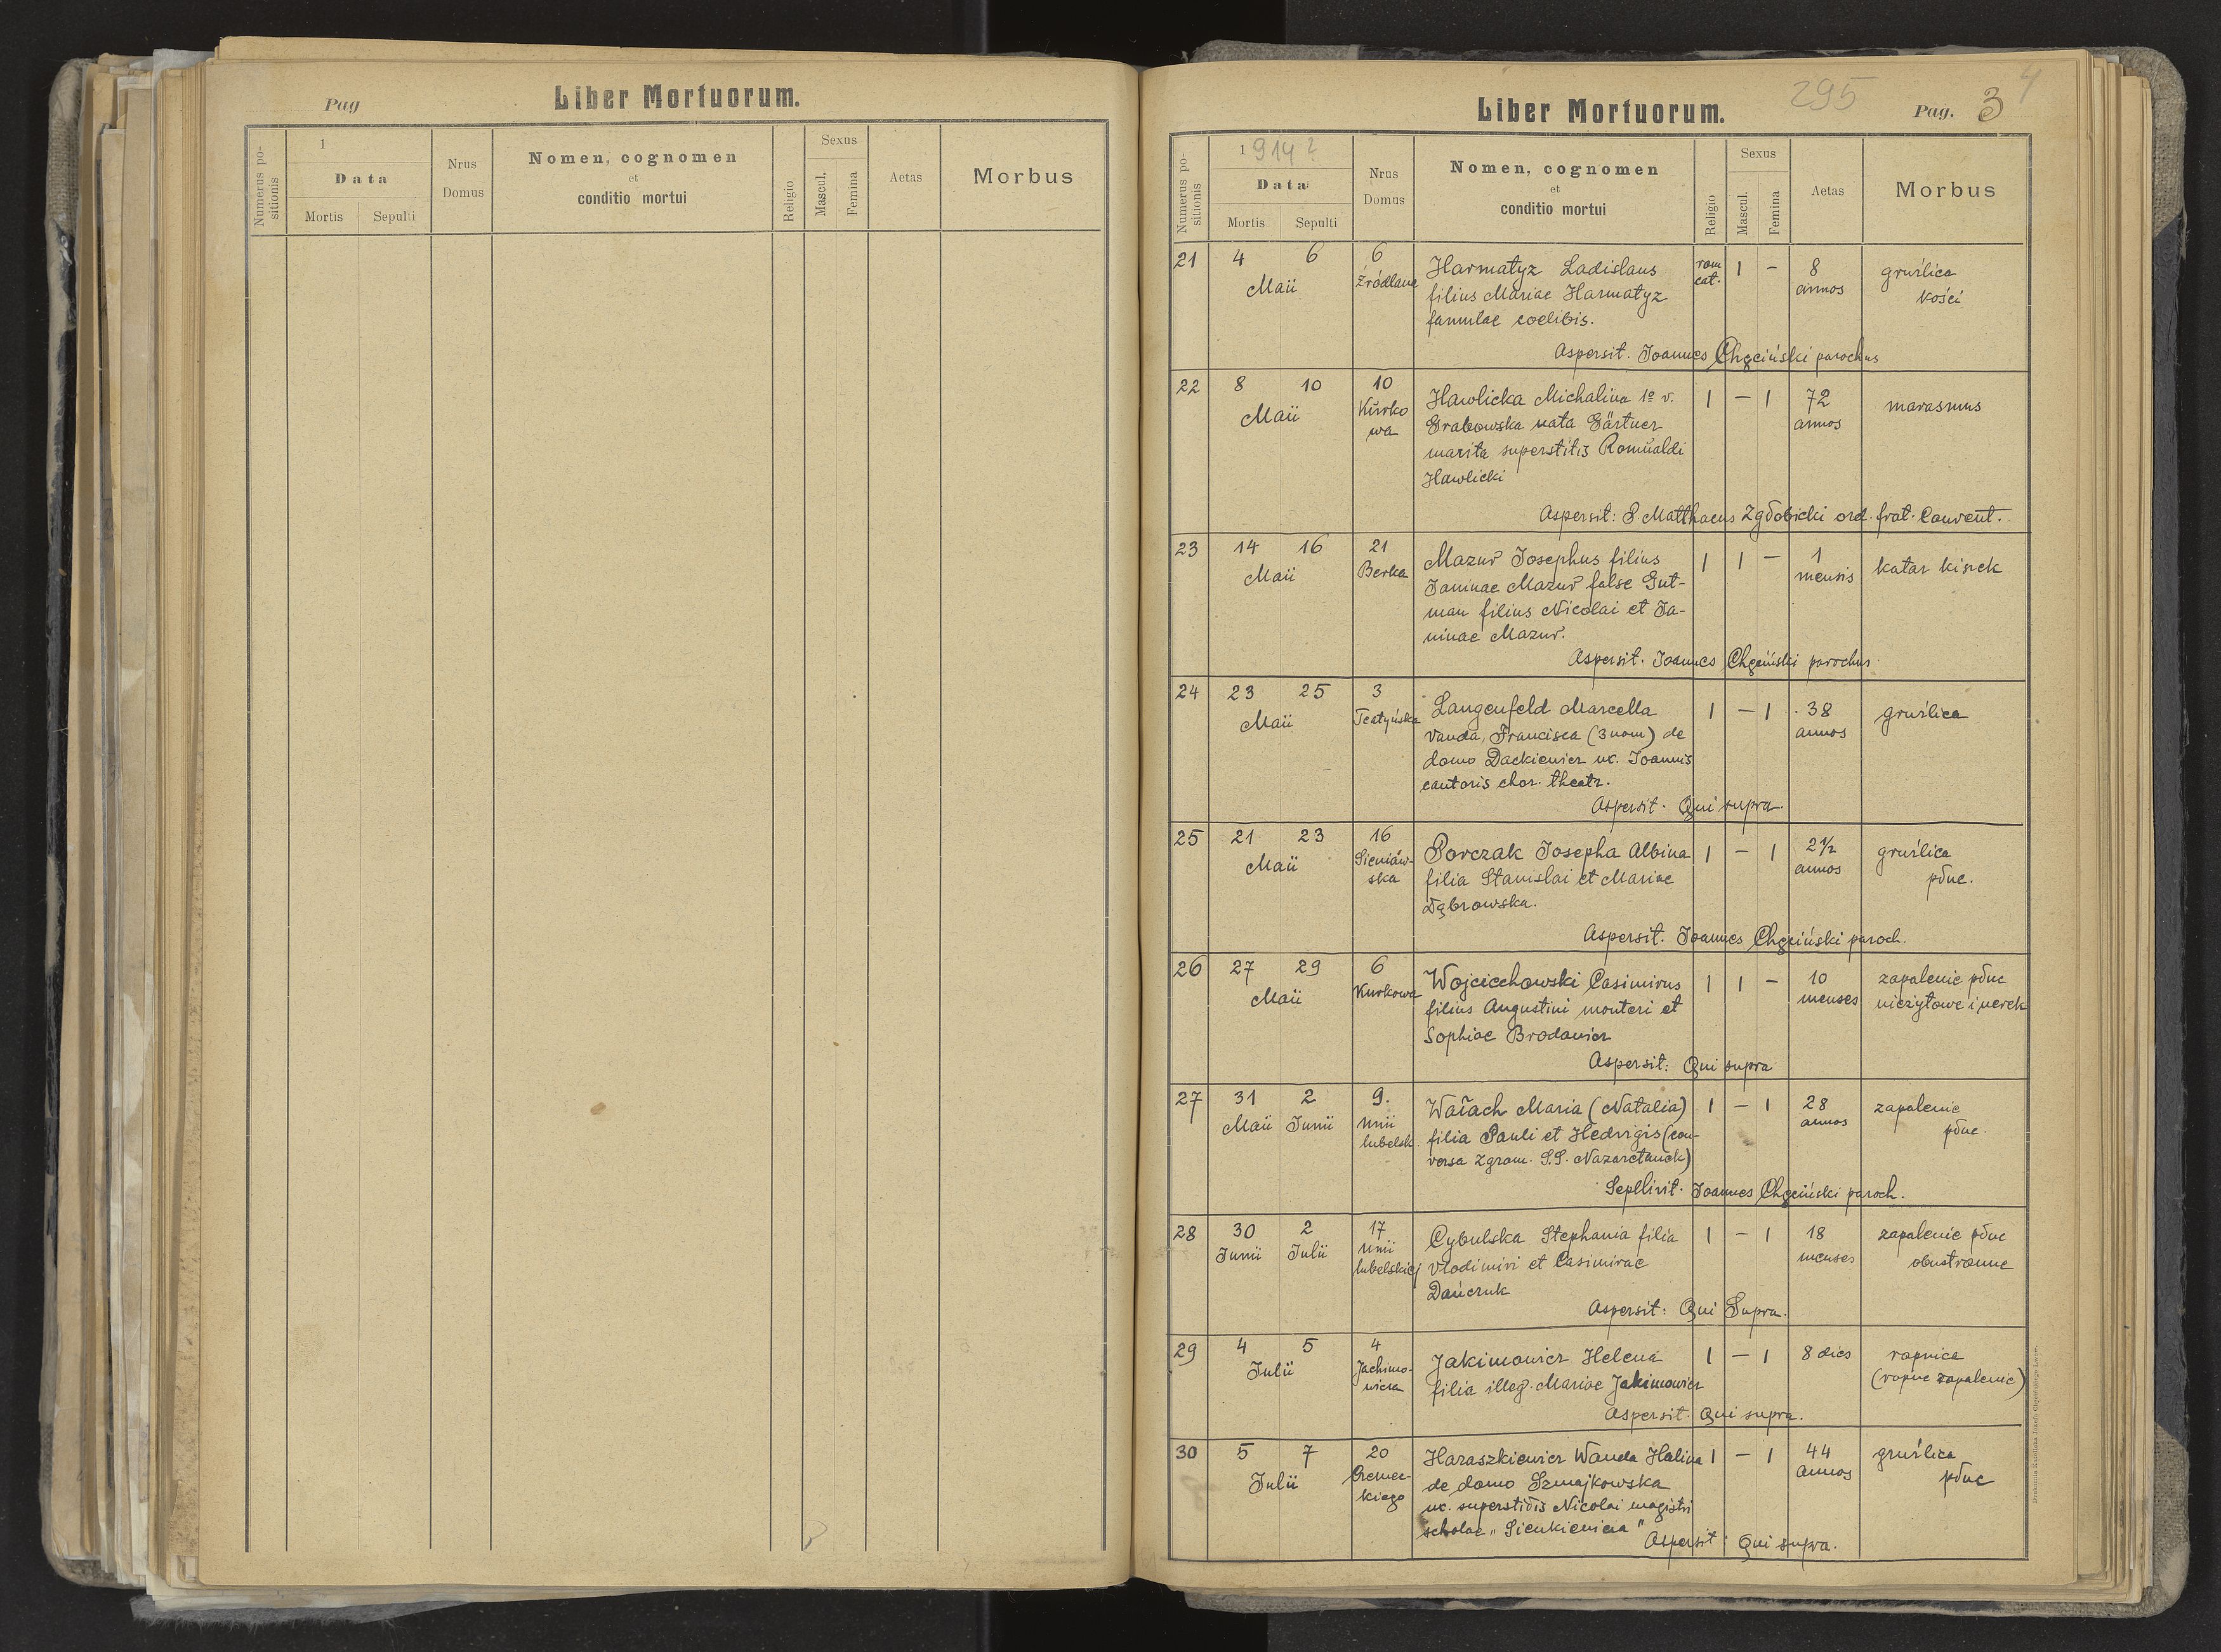 Pag
Liber Mortuorum.
Numerus positionis
1
Data
Mortis
Sepulti
Nrus
Domus
Nomen, cognomen
et
conditio mortui
Religio
Sexus
Mascul.
Femina
Aetas
Morbus
295
4
Liber Mortuorum.
Pag. 3
Numerus positionis
1914?
Data
Mortis
Sepulti
Nrus
Domus
Nomen, cognomen
et
conditio mortui
Religio
Sexus
Mascul.
Femina
Aetas
Morbus
21 4 6 Maii 6 Źródlana
Harmatyz Ladislaus
filius Mariae Harmatyz
famulae coelibis.
rom cat. 1 - 8 annos gruźlica kości
Aspersit. Joannes Chęciński parochus
22 8 10 Maii 10 Kurkowa
Hawlicka Michalina 1º v.
Grabowska nata Gärtner
marita superstitis Romualdi
Hawlicki
1 - 1 72 annos marasmus
Aspersit: P. Matthaeus Zgłobicki ord. frat. Convent.
23 14 16 Maii 21 Berka
Mazur Josephus filius
Janinae Mazur false Gut-
man filius Nicolai et Ja-
ninae Mazur.
1 1 - 1 mensis katar kiszek
Aspersit. Joannes Chęciński parochus
24 23 25 Maii 3 Teatyńska
Langenfeld Marcella
Vanda, Francisca (3 nom) de
domo Dackiewicz ux. Joannis
cantoris chor. theatr.
1 - 1 38 annos gruźlica
Aspersit. Qui supra.
25 21 23 Maii 16 Sieniaw-
ska
Porczak Josepha Albina
filia Stanislai et Mariae
Dąbrowska.
1 - 1 2½ annos gruźlica płuc.
Aspersit. Joannes Chęciński paroch.
26 27 29 Maii 6 Kurkowa
Wojciechowski Casimirus
filius Augustini monteri et
Sophiae Brodowicz
1 1 - 10 menses zapalenie płuc
nieżytowe i nerek
Aspersit: Qui supra
27 31 Maii 2 Junii 9. Unii
lubelsk.
Wałach Maria (Natalia)
filia Pauli et Hedvigis (con-
versa Zgrom. S.S. Nazaretanek)
1 - 1 28 annos zapalenie płuc.
Sepelivit. Joannes Chęciński paroch.
28 30 Junii 2 Julii 17 Unii
lubelskiej
Cybulska Stephania filia
Vlodimiri et Casimirae
Dańczuk
1 - 1 18 menses zapalenie płuc
obustronne
Aspersit: Qui Supra.
29 4 5 Julii 4 Jachimo-
wicza
Jakimowicz Helena
filia illeg. Mariae Jakimowicz
1 - 1 8 dies ropnica
(ropne zapalenie)
Aspersit. Qui supra.
30 5 7 Julii 20
kiego
Haraszkiewicz Wanda Halina
de domo Szmajkowska
ux. superstitis Nicolai magistri
scholae „Sienkiewicza"
1 - 1 44 annos gruźlica płuc
Aspersit Qui supra.